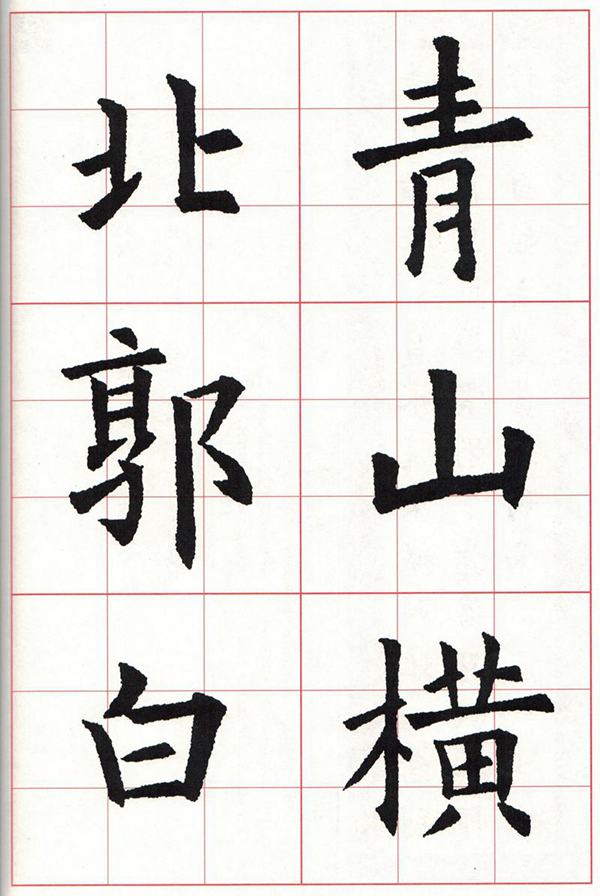 青山橫
北郭白